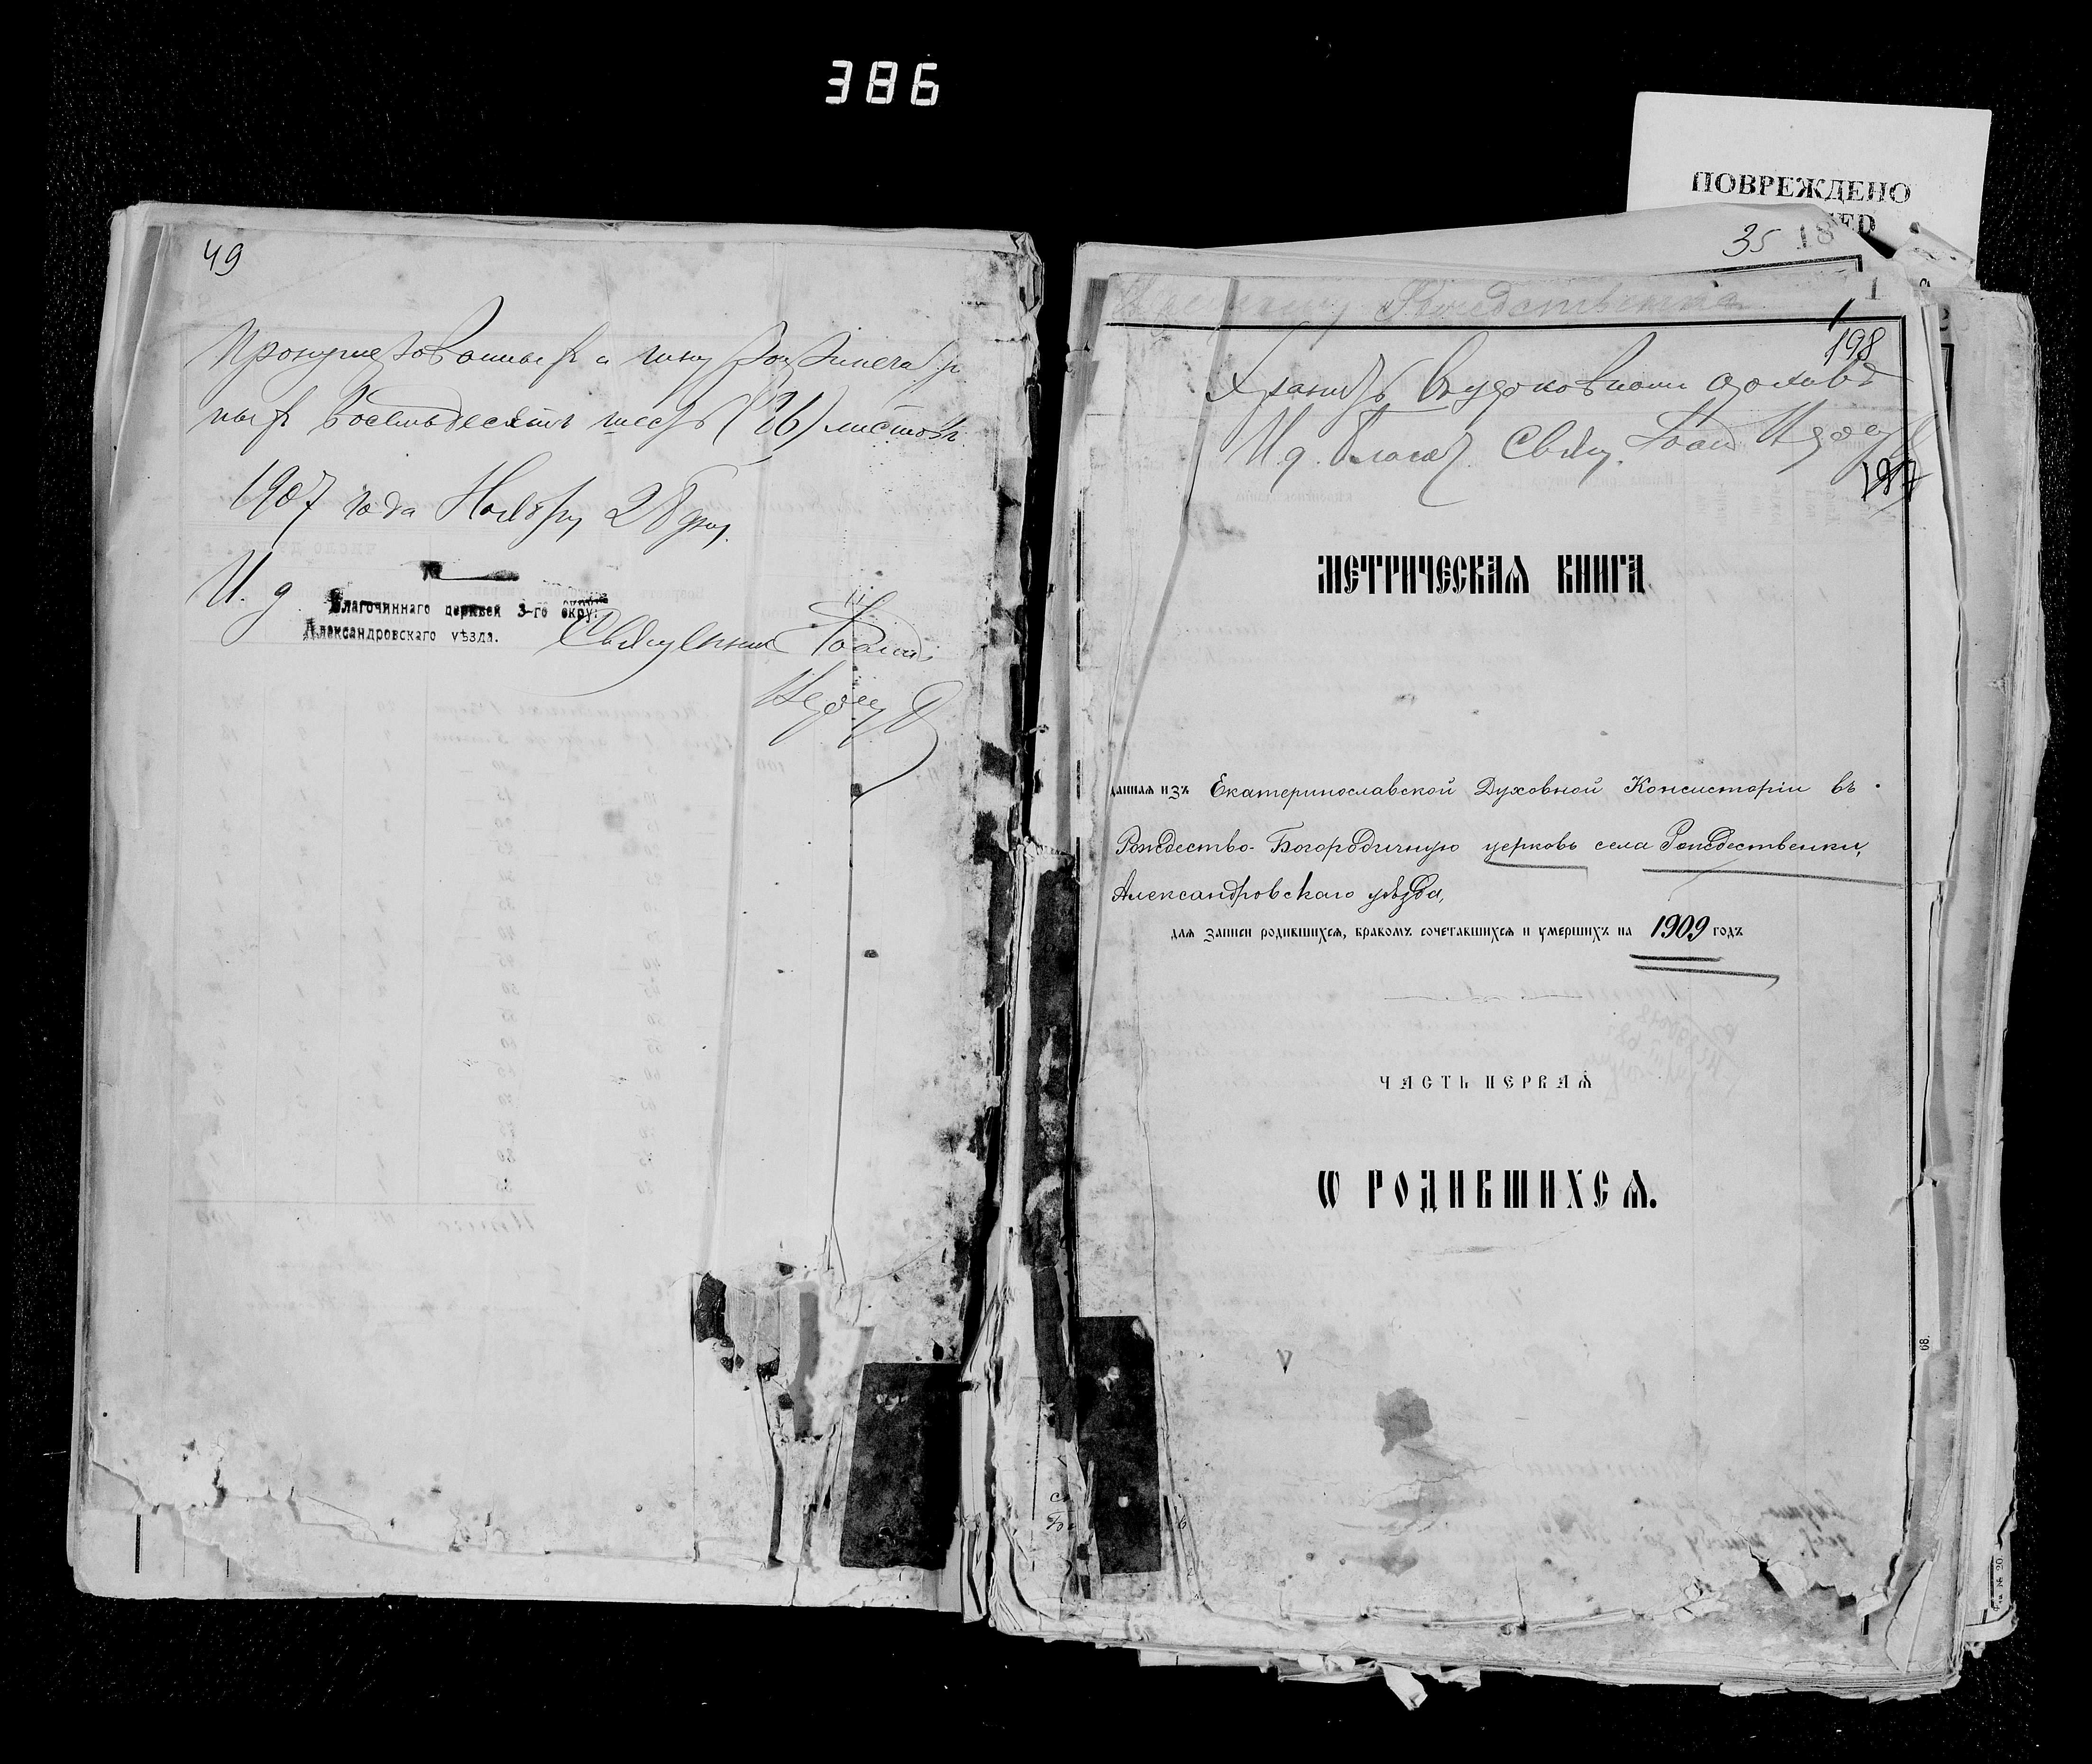 386
ПОВРЕЖДЕНО
49
Пронумерованныхъ и шнур
ныхъ восемьдесятъ шесть (86) листовъ.
1907 года Ноября 28 дня.
И. д.
Благочиннаго церквей 3-го округа
Александровскаго уѣзда.
Священникъ Іоаннъ
35 18
1
198
Хранить въ церковномъ архивѣ
И. д. Благоч. Свящ. Іоан
197
МЕТРИЧЕСКАЯ КНИГА,
данная изъ Екатеринославской Духовной Консисторіи въ
Рождество-Богородичную церковь села Рождественки,
Александровскаго уѣзда,
для записи родившихся, бракомъ сочетавшихся и умершихъ на 1909 годъ
ЧАСТЬ ПЕРВАЯ
Ѡ РОДИВШИХСЯ.
68.
№ 20.